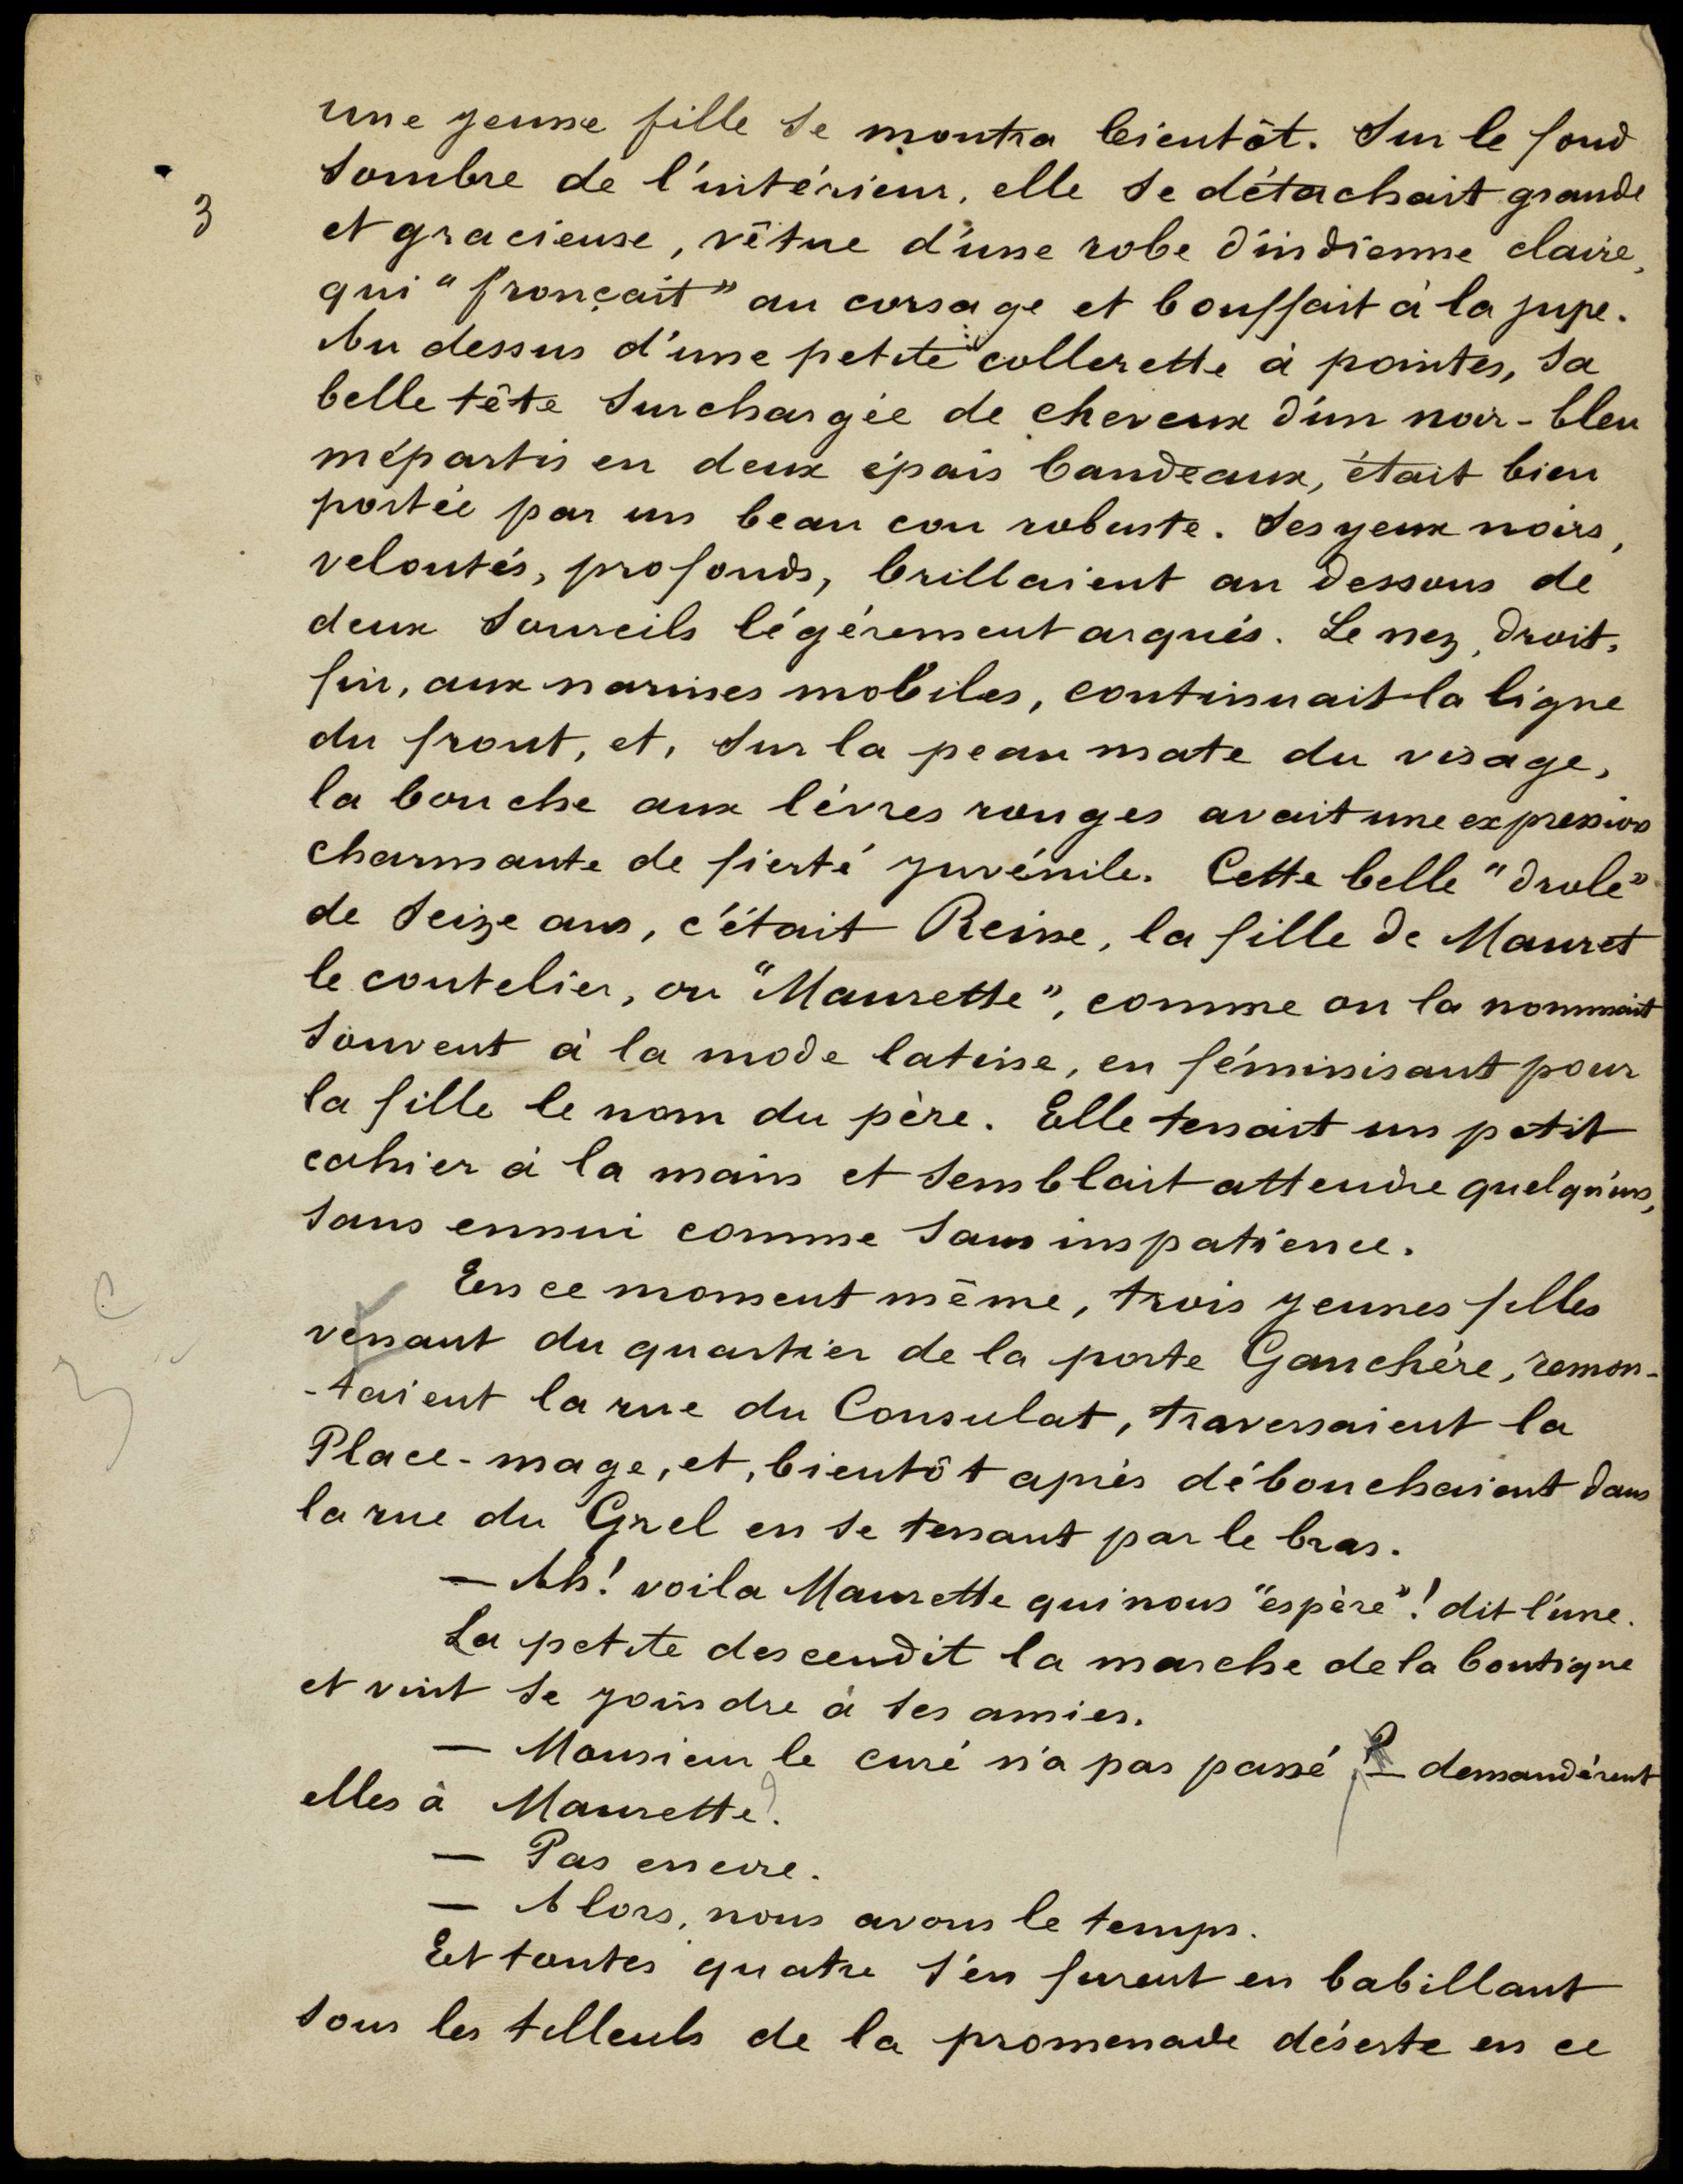 une jeune fille se montra bientôt. Sur le fond
3
sombre de l'intérieur, elle se détachait grande
et gracieuse, vêtue d'une robe d'indienne claire,
qui "fronçait" au corsage et bouffait à la jupe.
Au dessus d'une petite collerette à pointes, sa
belle tête surchargée de cheveux d'un noir-bleu
mépartis en deux épais bandeaux, était bien
portée par un beau cou robuste. Ses yeux noirs,
veloutés, profonds, brillaient au dessous de
deux sourcils légèrement arqués. Le nez, droit,
fin, aux narines mobiles, continuait la ligne
du front, et, sur la peau mate du visage,
la bouche aux lèvres rouges avait une expression
charmante de fierté juvénile. Cette belle "drole"
de seize ans, c'était Reine, la fille de Mauret
le coutelier, ou "Maurette", comme on la nommait
souvent à la mode latine, en féminisant pour
la fille le nom du père. Elle tenait un petit
cahier à la main et semblait attendre quelqu'un,
sans ennui comme sans impatience.
En ce moment même, trois jeunes filles
venant du quartier de la porte Gauchère, remon-
-taient la rue du Consulat, traversaient la
Place-mage, et, bientôt après débouchaient dans
la rue du Grel en se tenant par le bras.
— Ah! voila Maurette qui nous "espère"! dit l'une.
La petite descendit la marche de la boutique
et vint se joindre à ses amies.
— Monsieur le curé n'a pas passé ? — demandèrent
elles à Maurette.
— Pas encore.
— Alors, nous avons le temps.
Et toutes quatre s'en furent en babillant
sous les tilleuls de la promenade déserte en ce